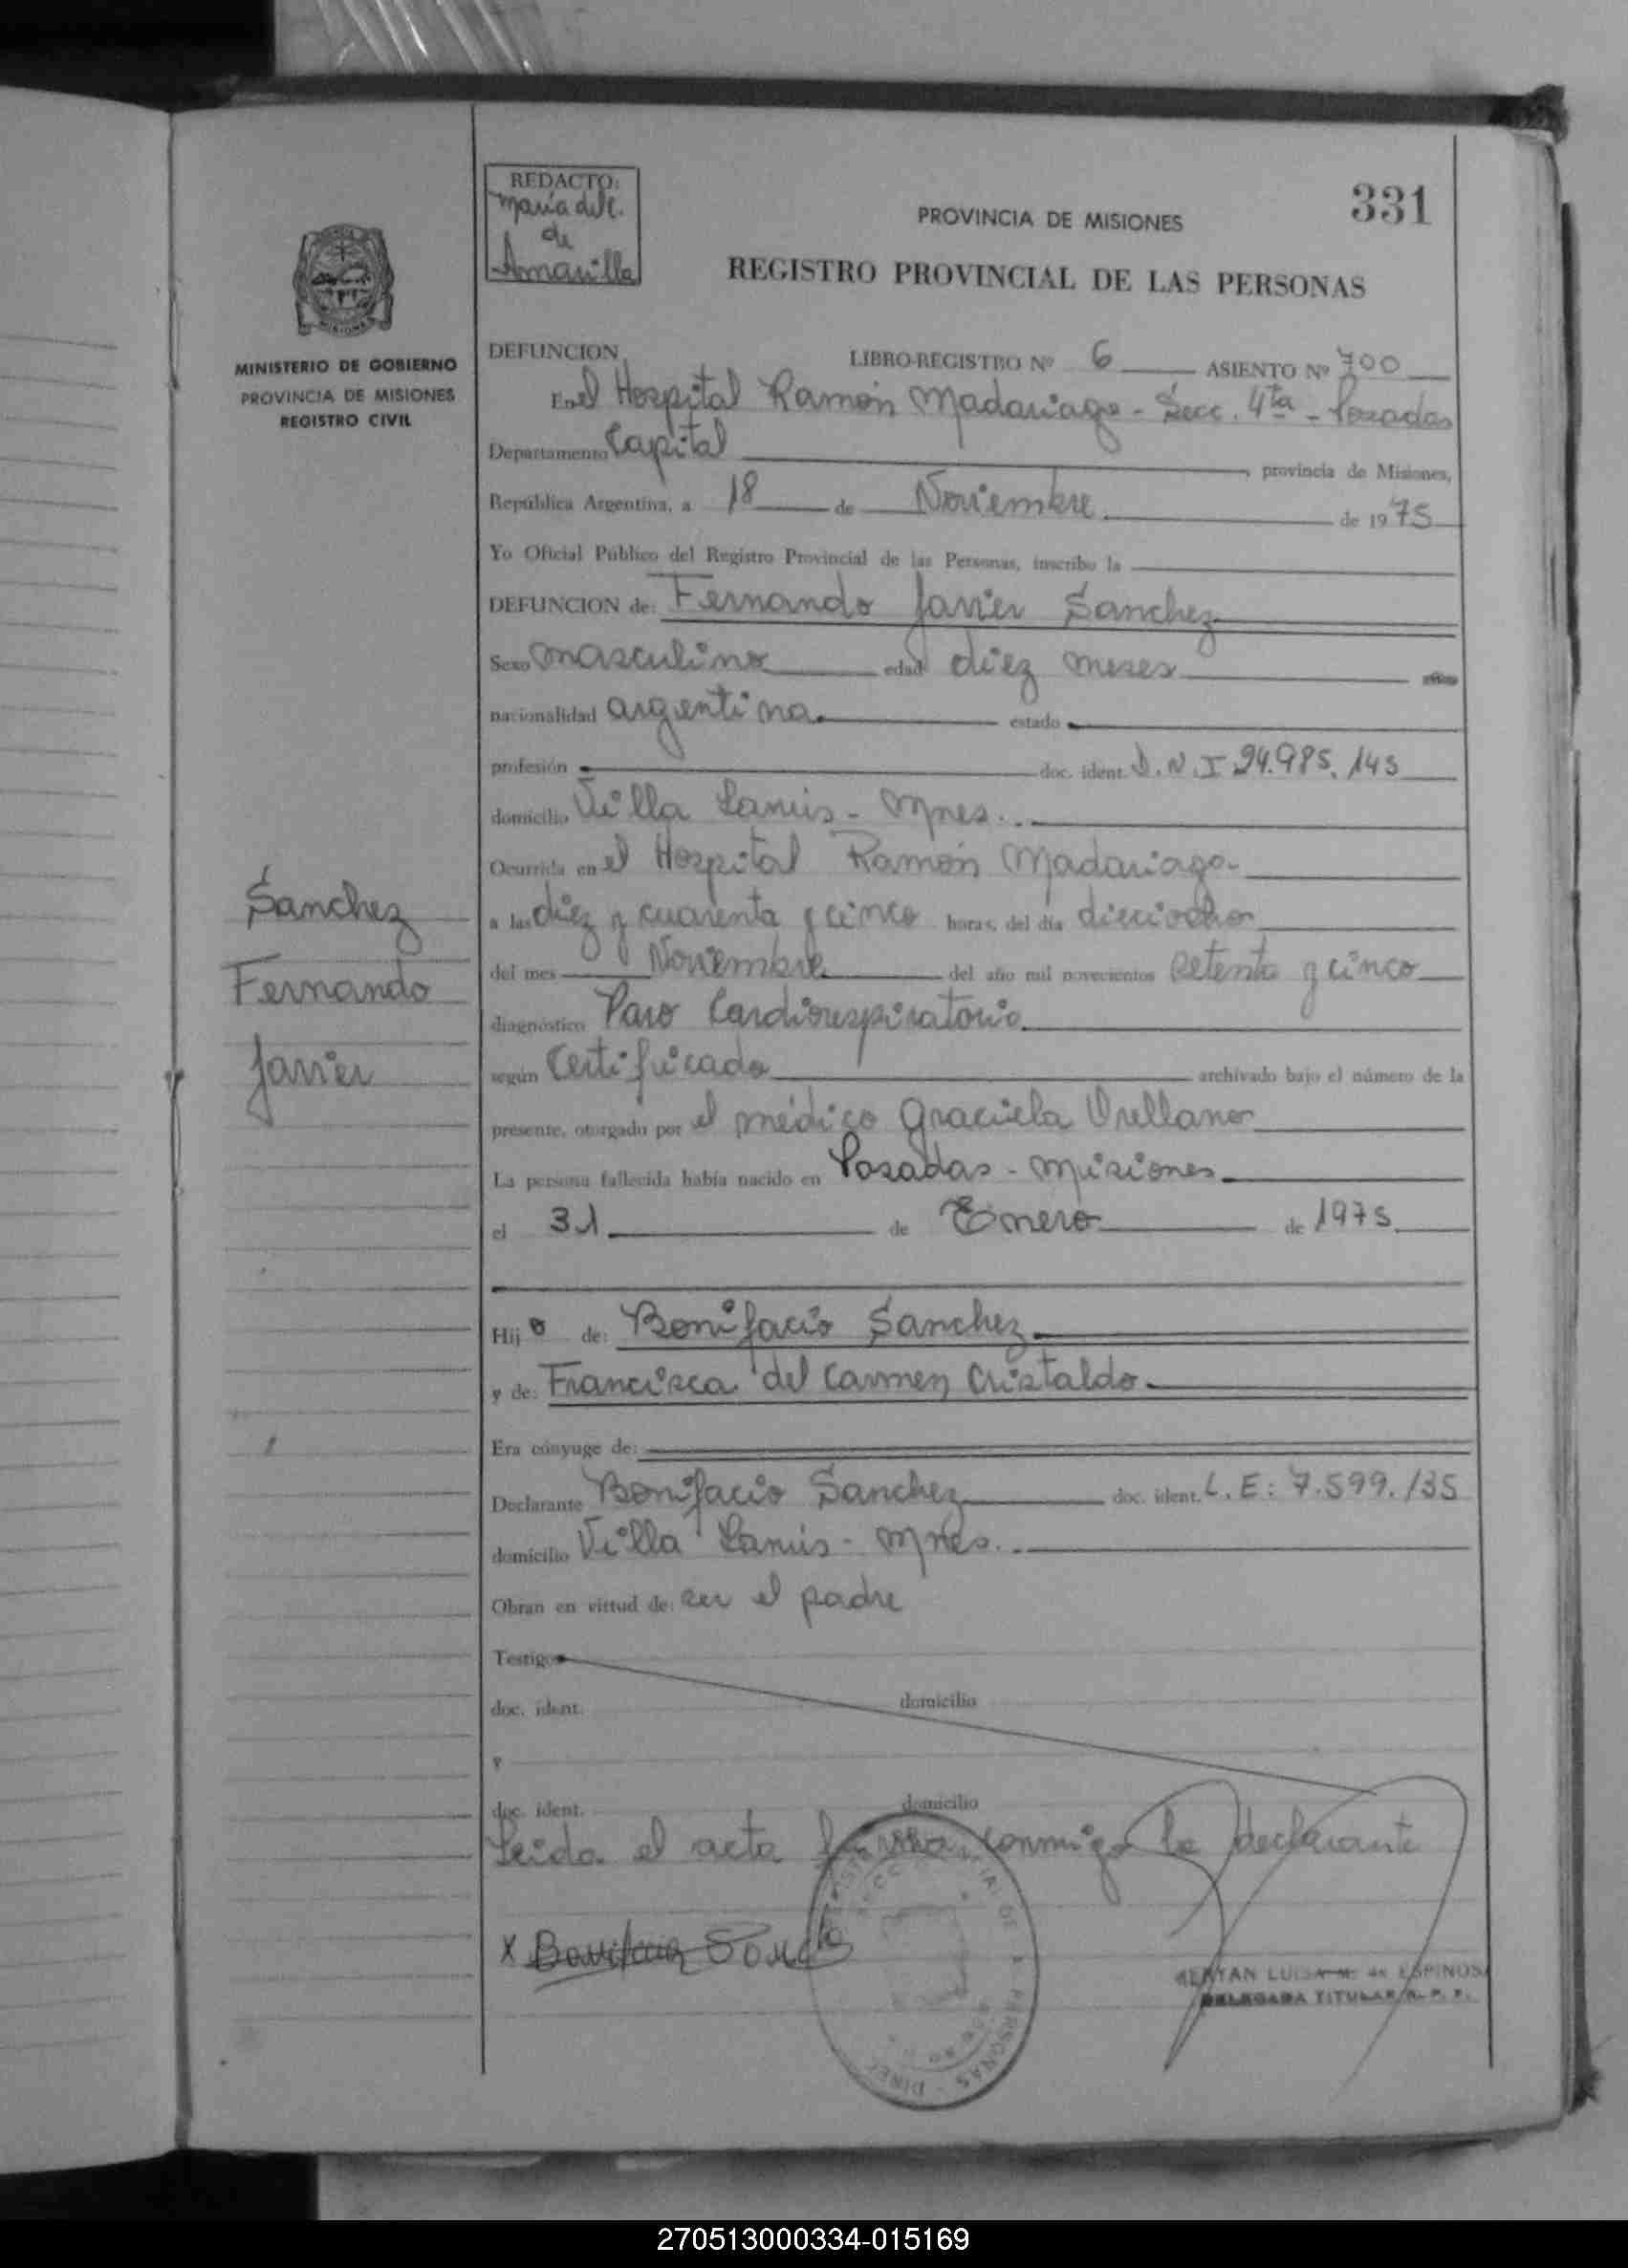 331
REDACTO:
Maria del C.
de
Amarilla
PROVINCIA DE MISIONES
REGISTRO PROVINCIAL DE LAS PERSONAS
MINISTERIO DE GOBIERNO
PROVINCIA DE MISIONES
REGISTRO CIVIL
DEFUNCION LIBRO-REGISTRO Nº 6 ASIENTO Nº 700
En el Hospital Ramón Madariaga - Secc. 4ta - Posadas
Departamento Capital, provincia de Misiones,
República Argentina, a 18 de Noviembre de 1975
Yo Oficial Público del Registro Provincial de las Personas, inscribo la
DEFUNCION de: Fernando Javier Sanchez
Sexo masculino edad diez meses años
nacionalidad argentina. estado
profesión doc. ident. D.N.I 24.985.143
domicilio Villa Lanús - Mnes.
Ocurrida en el Hospital Ramón Madariaga-
a las diez y cuarenta y cinco horas, del día dieciocho
del mes Noviembre del año mil novecientos setenta y cinco
diagnóstico Paro Cardiorespiratorio
según Certificado archivado bajo el número de la
presente, otorgado por el médico Graciela Orellano
La persona fallecida había nacido en Posadas - Misiones
el 31 de Enero de 1975
Hijo de: Bonifacio Sanchez
y de: Francisca del Carmen Cristaldo
Era cónyuge de:
Declarante Bonifacio Sanchez doc. ident. L.E: 7.599.135
domicilio Villa Lanús - Mnes.
Obran en virtud de: ser el padre
Testigos
doc. ident. domicilio
y
doc. ident. domicilio
Leida el acta firma conmigo la declarante
X Bonifacio Sanchez
LUISA M. de ESPINOSA
DELEGADA TITULAR R. P. P.
Sanchez
Fernando
Javier
270513000334-015169